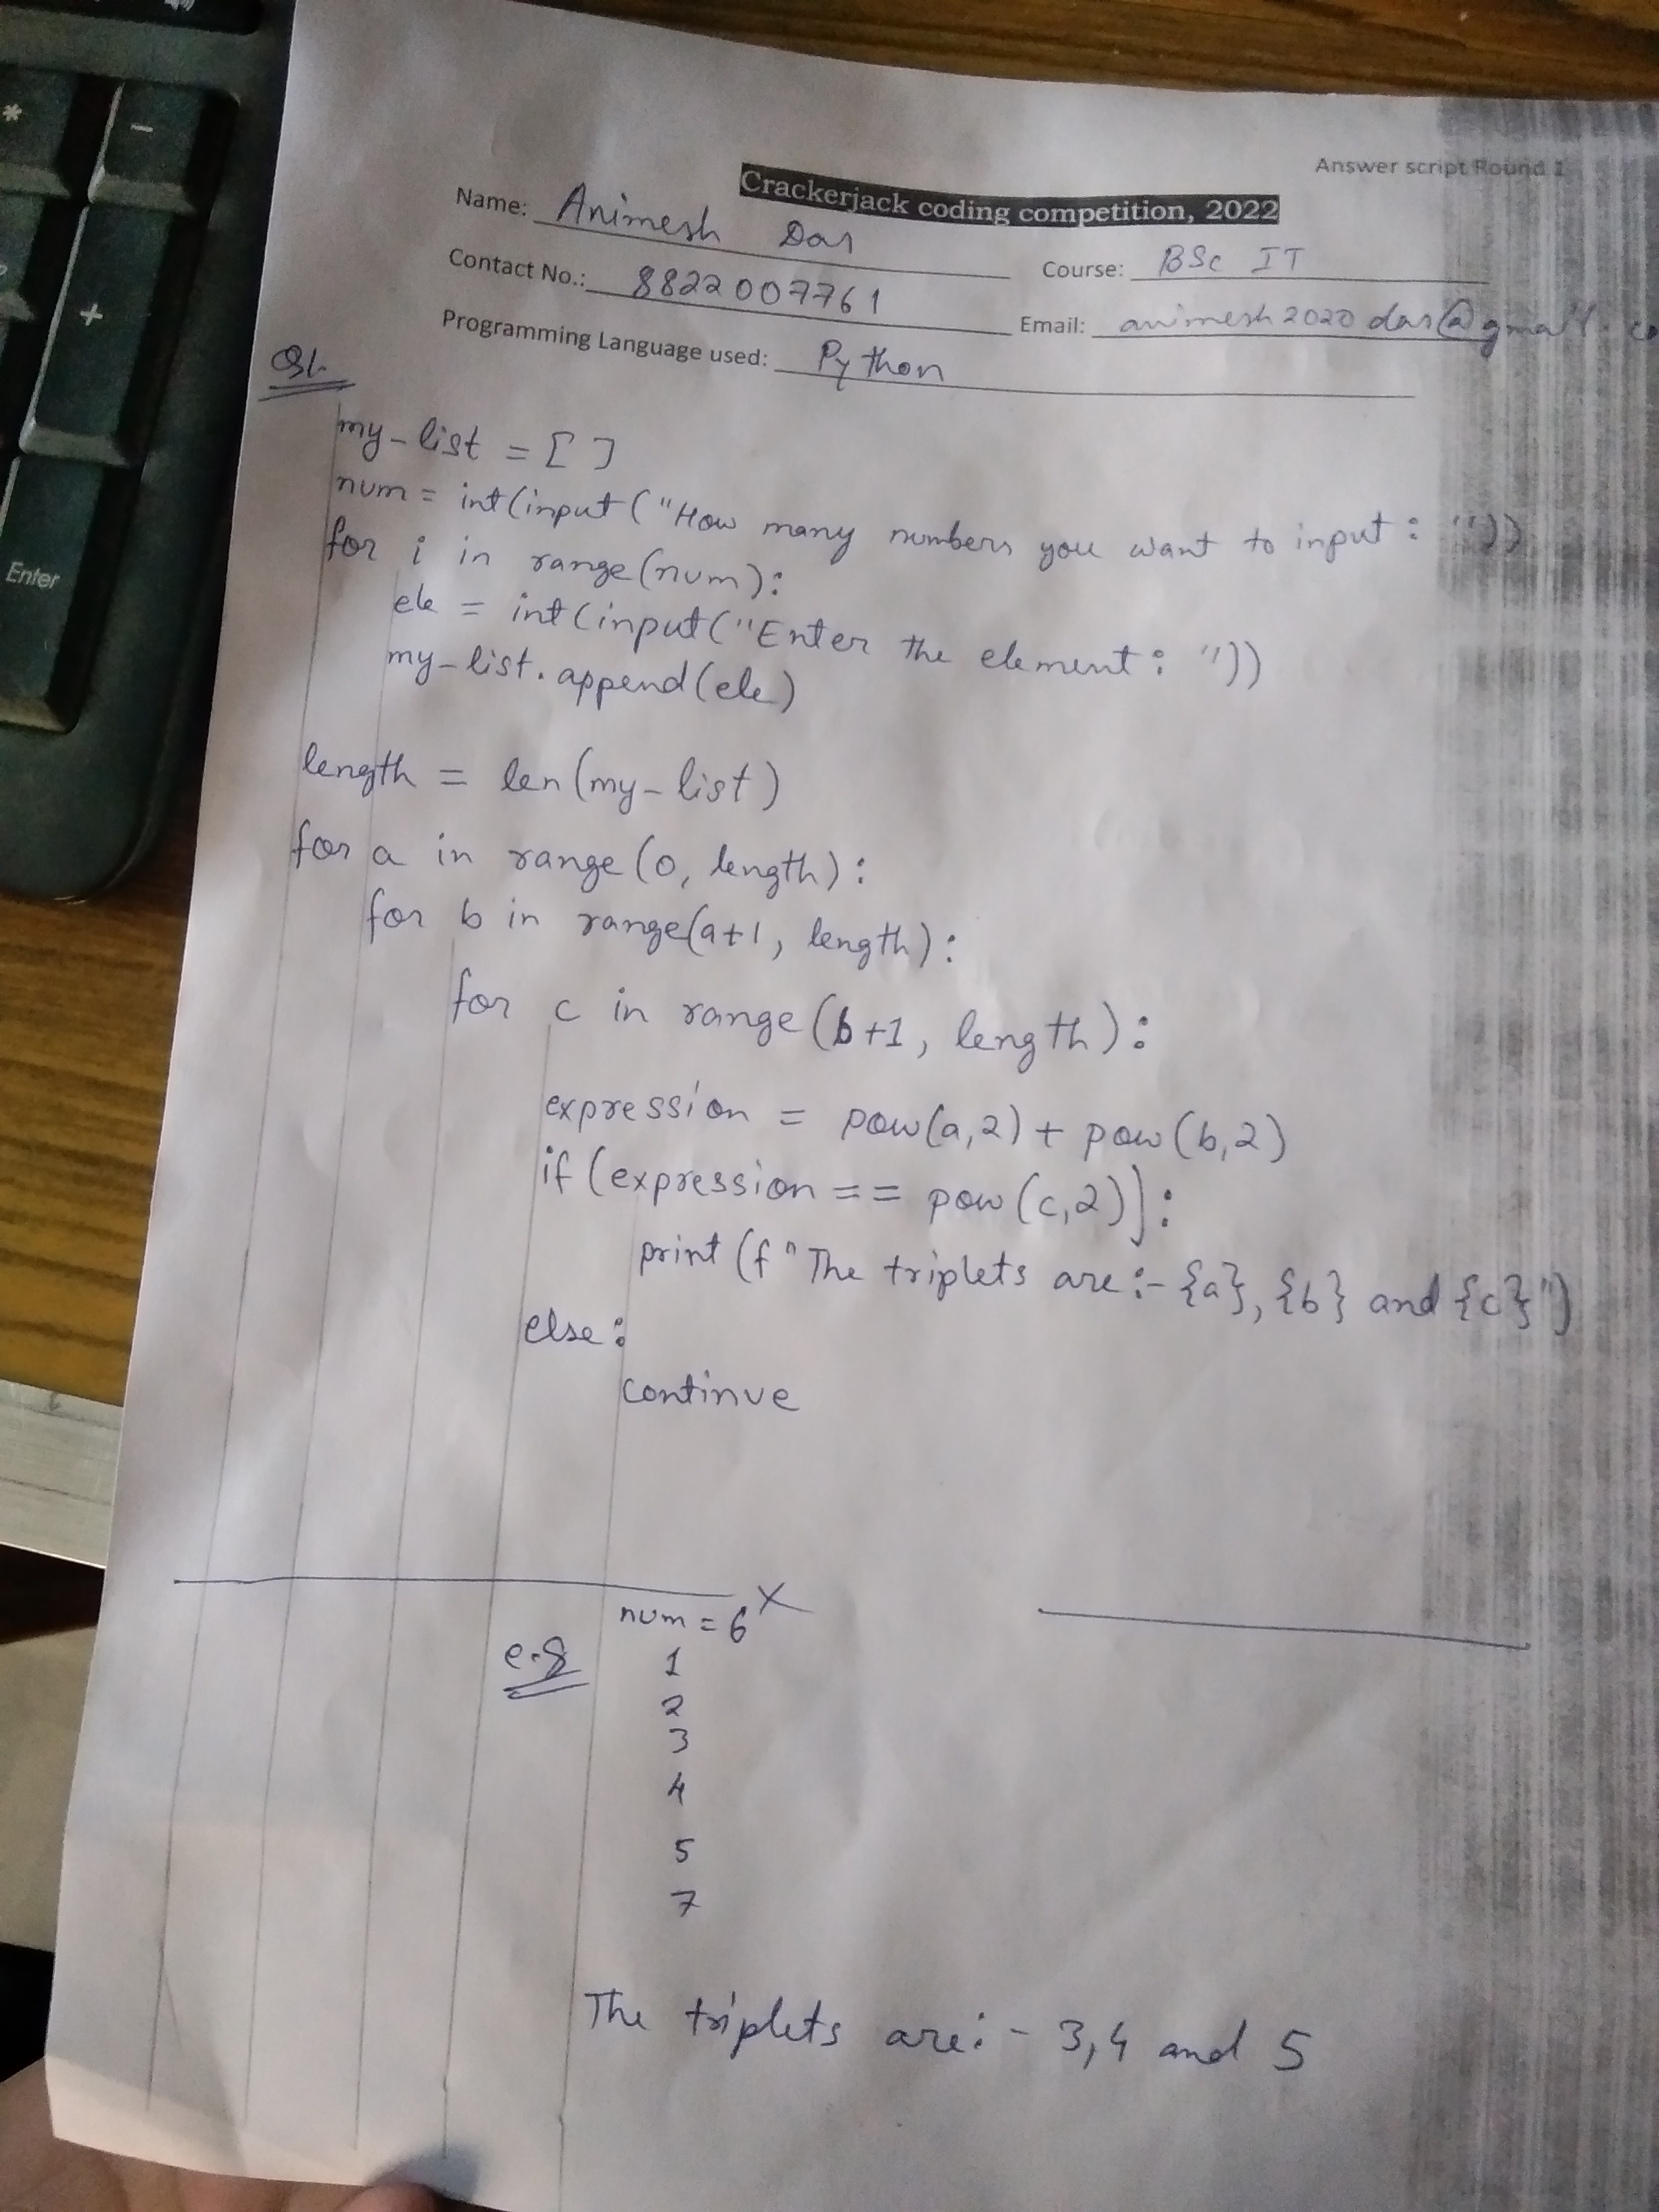 Answer script Round 1
Crackerjack coding competition, 2022
Name: Animesh Das
Contact No.: 8822007761
Course: BSc IT
Programming Language used: Python
Email: animesh2020das@gmail.co
Q1.
my-list = [ ]
num = int(input("How many numbers you want to input : "))
for i in range(num):
ele = int(input("Enter the element : "))
my-list.append(ele)
length = len(my-list)
for a in range(0, length):
for b in range(a+1, length):
for c in range(b+1, length):
expression = pow(a,2) + pow(b,2)
if (expression == pow(c,2)):
print(f"The triplets are:- {a}, {b} and {c}")
else:
continue
X
num = 6
e.g
1
2
3
4
5
7
The triplets are:- 3,4 and 5
*
-
+
Enter